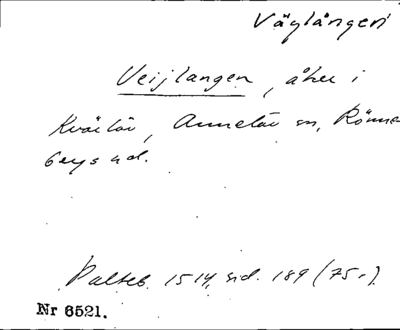 Väglången
Veijlangen, åker i
Kvärlöv, Annelöv sn, Rönne
bergs hd.
Palteb. 1514, sid. 189 (75-).
Nr 6521.